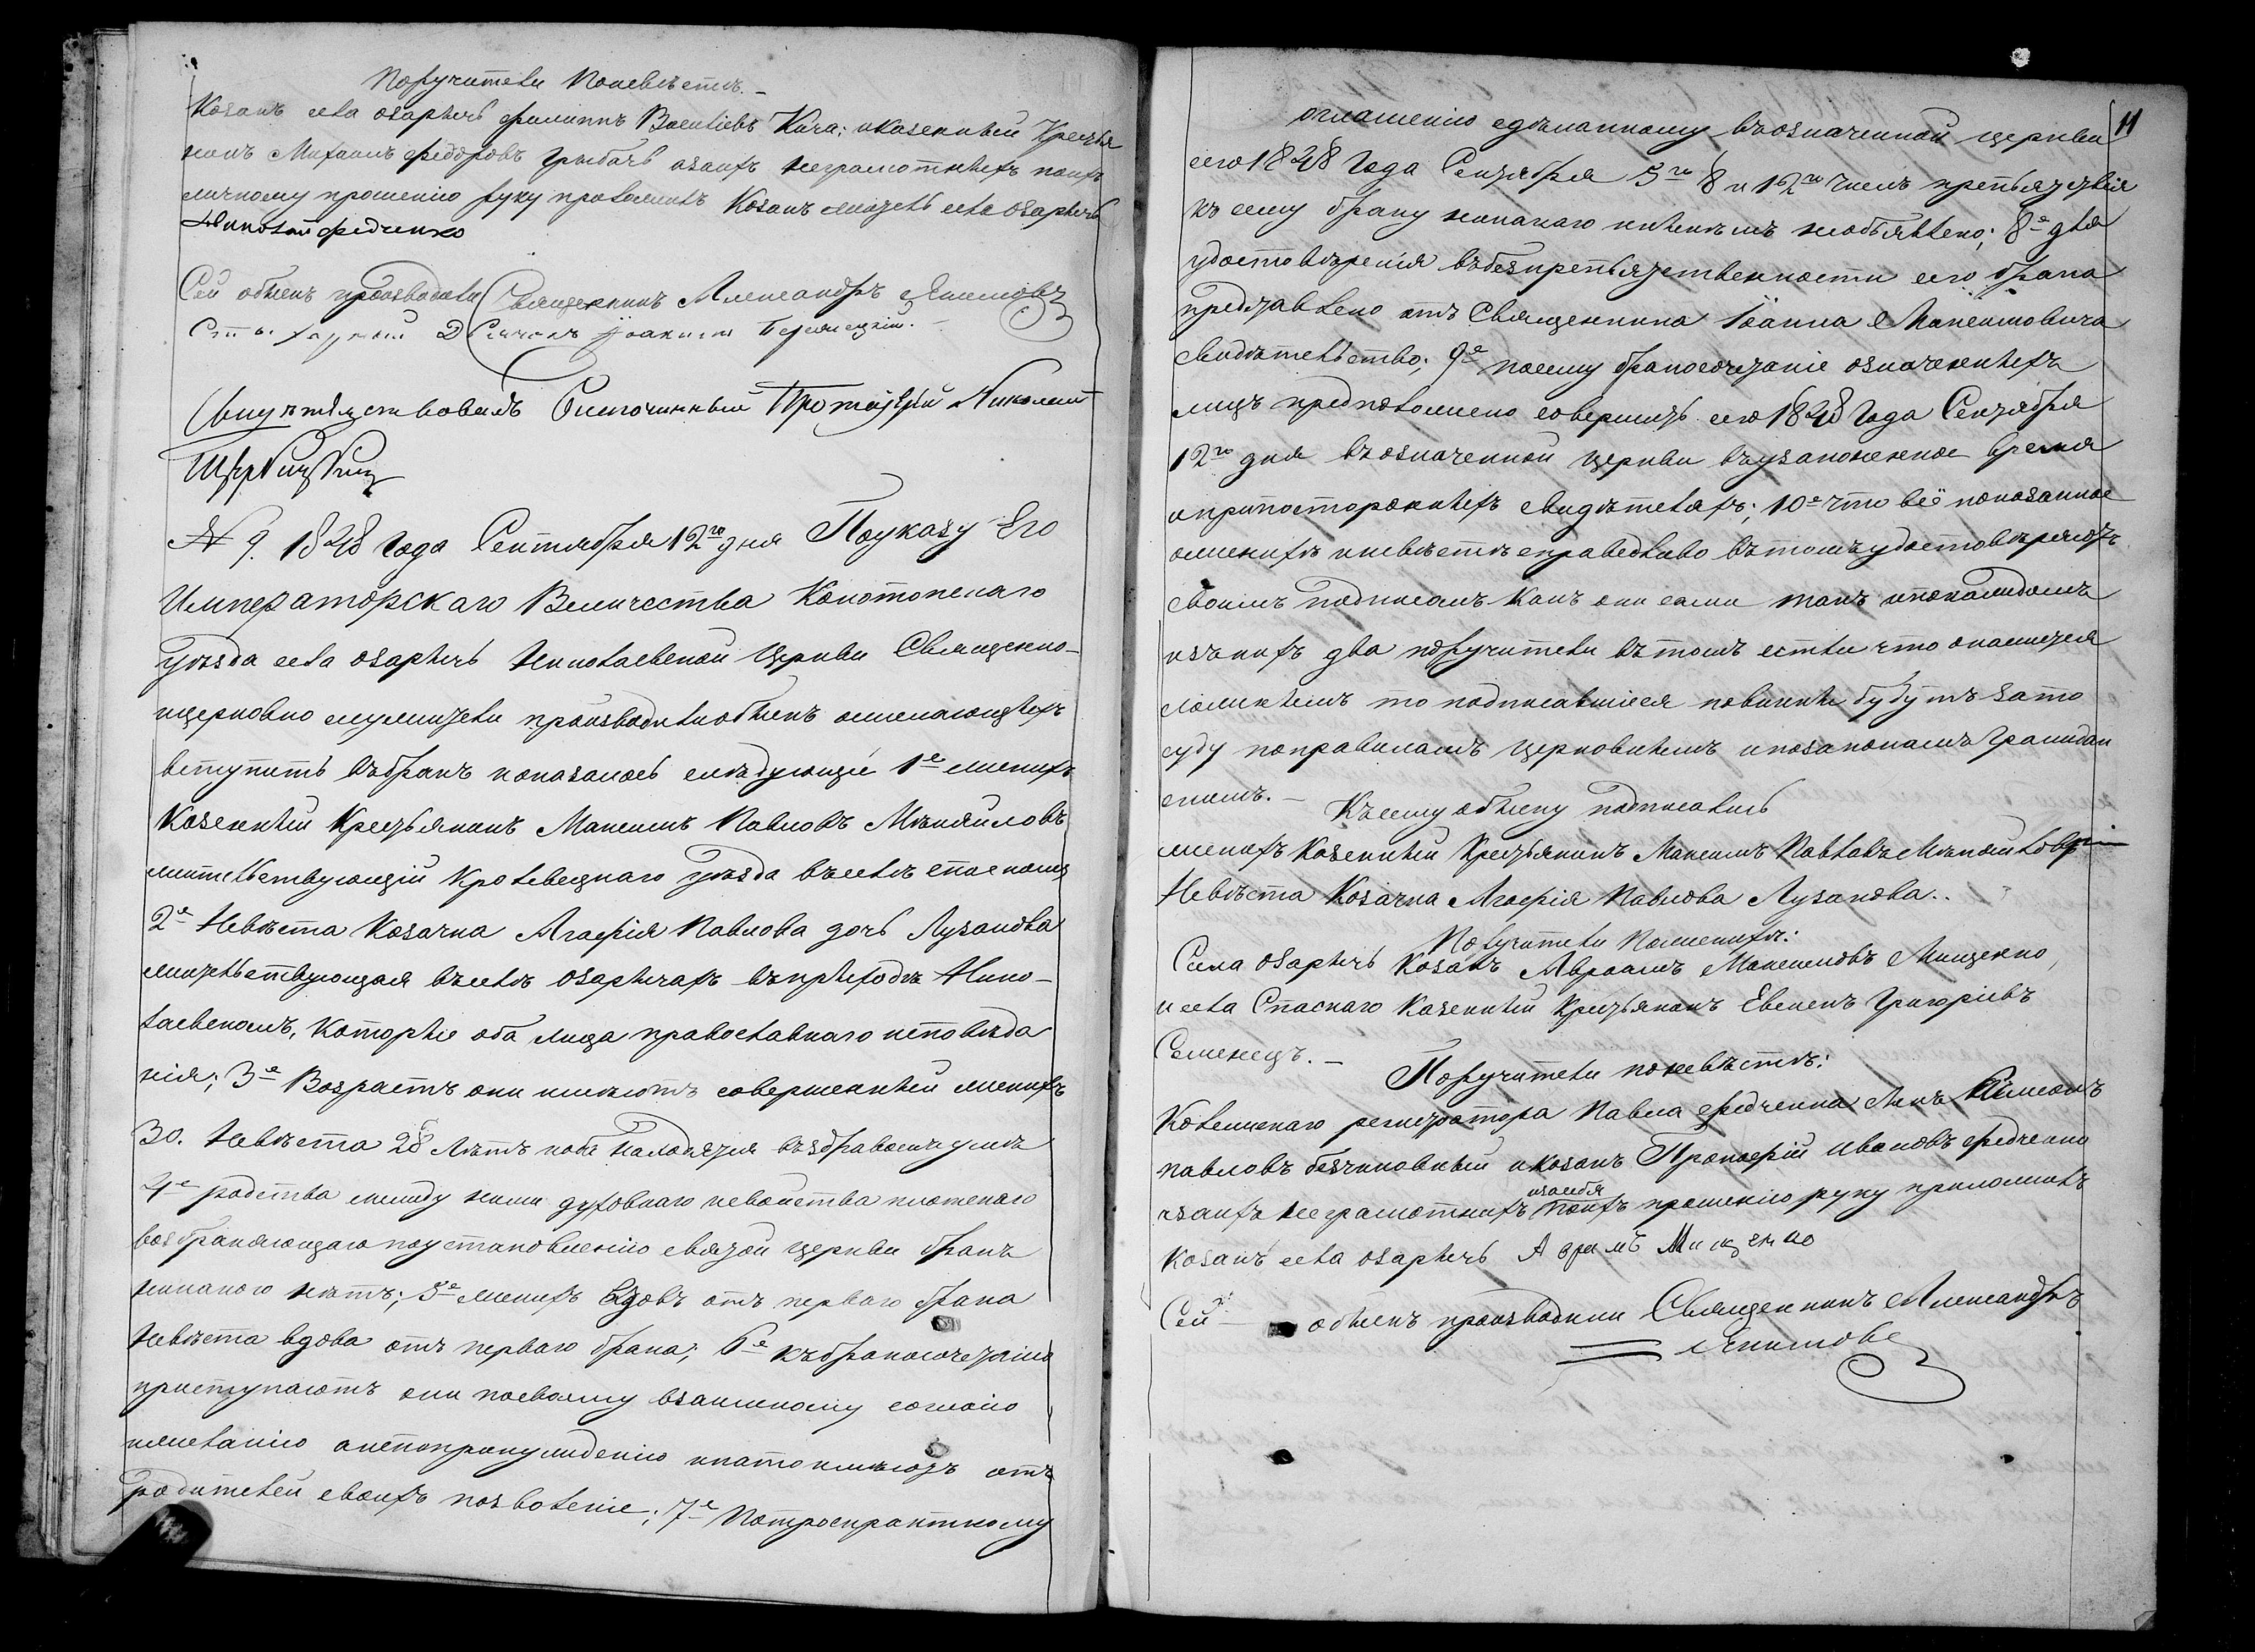 Поручители Поневѣстѣ. –
Козакъ села Озаричъ Филиппъ Васильевъ Кича; и казенный Крестья
нинъ Михаилъ Федоровъ Грибачъ а за ихъ неграмотныхъ по ихъ
личному прошенію руку приложилъ Козакъ житель села Озаричъ
Николай Федченко
Сей обыскъ производили Священникъ Александръ Якимовъ
Дьячокъ Іоакимъ
Свидѣтельствовалъ Благочинный Протоіерей Николай
№ 9. 1848 Года Сентября 12го дня По указу Его
Императорскаго Величества Конотопскаго
Уѣзда села Озаричъ Николаевской Церкви Священно-
ицерковно служители производили обыскъ о желающихъ
вступить въ бракъ и оказалось слѣдующее 1е женихъ
Казенный Крестьянинъ Максимъ Павловъ Михайловъ
жительствующій Кролевецкаго Уѣзда въ селѣ Спаскомъ
2е Невѣста Козачка Агафія Павлова дочь Лузанова
жительствующая въ селѣ Озаричахъ въ приходѣ Нико-
лаевскомъ, которые оба лица православнаго исповѣда
нія; 3е Возрастъ они имѣютъ совершенный женихъ
30. Невѣста 28 лѣтъ и оба находятся въ здравомъ умѣ
4е родства между ними духовнаго и свойства плотскаго
возбраняющаго по установленію святой церкви бракъ
никакого нѣтъ; 5е женихъ Вдовъ отъ перваго брака
Невѣста вдова отъ перваго брака; 6е къ бракосочетанію
приступаютъ они по своему взаимному согласію
и желанію а не по принужденію и на то имѣютъ отъ
Родителей своихъ позволеніе; 7е По троекратному
11
оглашенію сдѣланному въ означенной церкви
сего 1848 Года Сентября 5го 8 и 12го чиселъ препятствія
къ сему браку никакого никѣмъ не объявлено; 8е для
удостовѣренія въ безпрепятственности сего брака
представлено отъ Священника Іоанна Максимовича
свидѣтельство; 9е посему бракосочетаніе означенныхъ
лицъ предположено совершить сего 1848 Года Сентября
12го дня въ означенной церкви въ узаконенное время
и при постороннихъ свидѣтеляхъ; 10е что всё показанное
о женихѣ и невѣстѣ справедливо въ томъ удостовѣряютъ
своимъ подписомъ какъ они сами такъ и по каждомъ
изъ нихъ два поручители въ томъ естьли что окажется
ложнымъ то подписавшіеся повинны будутъ за то
суду по правиламъ церковнымъ и по законамъ Граждан
скимъ. –
Къ сему обыску подписались
женихъ Казенный Крестьянинъ Максимъ Павловъ Михайловъ
Невѣста Козачка Агафія Павлова Лузанова..
Поручители По женихѣ:
Села Озаричъ Козакъ Авраамъ Максимовъ Мищенко,
и села Спаскаго Казенный Крестьянинъ Евсеій Григоріевъ
Семенецъ. –
Поручители по невѣстѣ:
Колежскаго регистратора Павла Федченка сынъ Симеонъ
Павловъ безчиновный и козакъ Прокофій Ивановъ Федченко
а за ихъ неграмотныхъ по ихъ прошенію и за себя руку приложилъ
Козакъ села Озаричъ Аврамъ Мищенко
Сей обыскъ производили Священникъ Александръ
Якимовъ